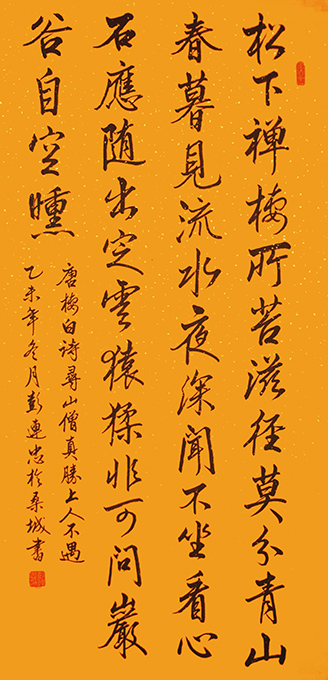 松下禅棲所苔滋径莫分青山
春暮見流水夜深聞不坐看心
石應随出定雲猿猱非可問巖
谷自空曛
唐棲白詩尋山僧真勝上人不遇
乙未年冬月彭連忠於桑城書